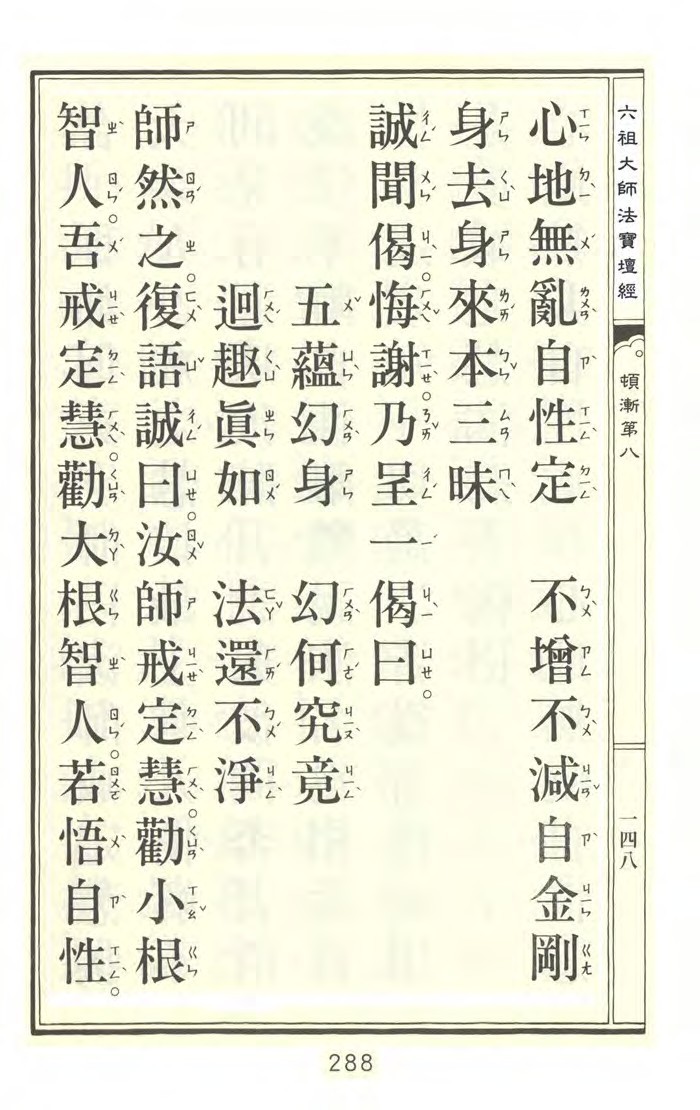 六祖大師法寶壇經
頓漸第八
一四八
心地無亂自性定　不增不減自金剛
身去身來本三昧
誠聞偈。悔謝。乃呈一偈曰。
五蘊幻身　幻何究竟
迴趣眞如　法還不淨
師然之。復語誠曰。汝師戒定慧。勸小根
智人。吾戒定慧。勸大根智人。若悟自性。
288